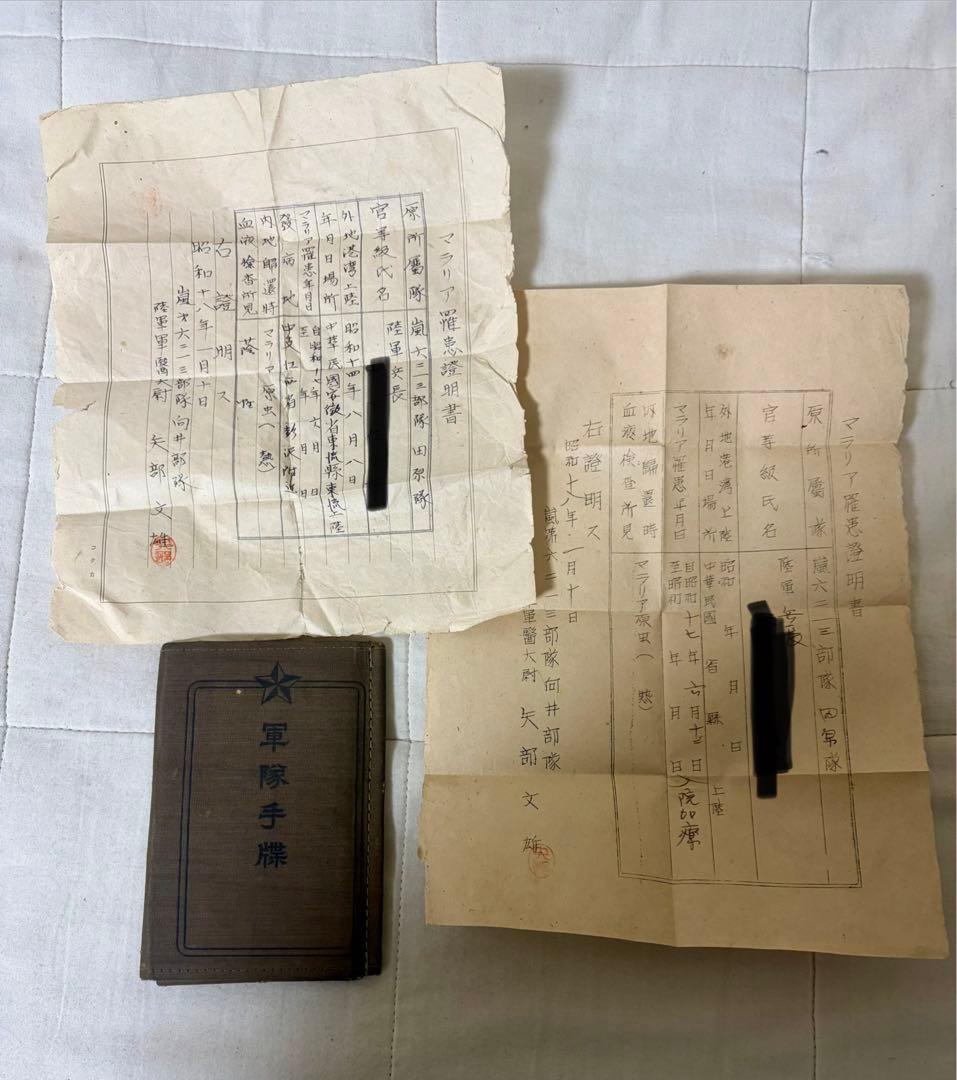 マラリア罹患證明書
原所屬隊 嵐六二一三部隊 田原隊
官等級氏名 陸軍兵長
外地港湾上陸年月日場所 昭和十四年八月八日
中華民國安徽省東流縣東流上陸
マラリア罹患年月日 自昭和十七年六月 日
至 年 月 日
發病地 中支江西省 附近
内地歸還時血液検査所見 マラリア原虫(
右證明ス
昭和十八年一月十日
嵐第六二一三部隊向井部隊
陸軍軍醫大尉 矢部文雄
コクカ
マラリア罹患證明書
原所屬隊 嵐六二一三部隊 田原隊
官等級氏名 陸軍兵長
外地港湾上陸年月日場所 昭和 年 月 日
中華民國 省 縣 上陸
マラリア罹患年月日 自昭和十七年六月十三日入院加療
至昭和 年 月 日
内地歸還時血液検査所見 マラリア原虫(
右證明ス
昭和十八年一月十日
嵐第六二一三部隊向井部隊
軍醫大尉 矢部文雄
軍隊手牒